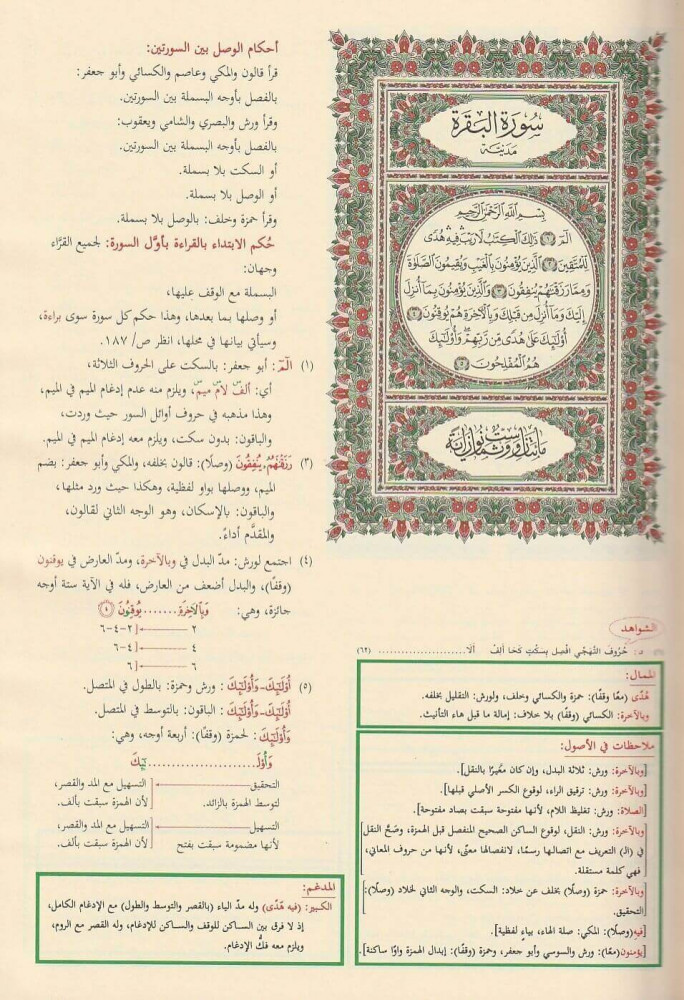 سُورَةُ البَقَرَةِ
مَدَنِيَّة
بِسْمِ اللَّهِ الرَّحْمَٰنِ الرَّحِيمِ
الٓمٓ ۝١ ذَٰلِكَ ٱلْكِتَٰبُ لَا رَيْبَ فِيهِ هُدًى
لِّلْمُتَّقِينَ ۝٢ ٱلَّذِينَ يُؤْمِنُونَ بِٱلْغَيْبِ وَيُقِيمُونَ ٱلصَّلَوٰةَ
وَمِمَّا رَزَقْنَٰهُمْ يُنفِقُونَ ۝٣ وَٱلَّذِينَ يُؤْمِنُونَ بِمَآ أُنزِلَ
إِلَيْكَ وَمَآ أُنزِلَ مِن قَبْلِكَ وَبِٱلْـَٔاخِرَةِ هُمْ يُوقِنُونَ ۝٤
أُو۟لَٰٓئِكَ عَلَىٰ هُدًى مِّن رَّبِّهِمْ وَأُو۟لَٰٓئِكَ
هُمُ ٱلْمُفْلِحُونَ ۝٥
الشواهد
د: حُرُوفَ التَّهَجِّي افْصِل بِسَكْتٍ كَحَا أَلِفْ أَلَا........................ (٦٢)
الممال:
هُدًى (معًا وقفًا): حمزة والكسائي وخلف، ولورش: التقليل بخلفه.
وبالآخرة: الكسائي (وقفًا) بلا خلاف: إمالة ما قبل هاء التأنيث.
ملاحظات في الأصول:
[وبالآخرة: ورش: ثلاثة البدل، وإن كان مغيَّرًا بالنقل].
[وبالآخرة: ورش: ترقيق الراء، لوقوع الكسر الأصلي قبلها].
[الصلاة: ورش: تغليظ اللام، لأنها مفتوحة سبقت بصاد مفتوحة].
[وبالآخرة: ورش: النقل، لوقوع الساكن الصحيح المنفصل قبل الهمزة، وصَحَّ النقل
في (الـ) التعريف مع اتصالها رسمًا، لانفصالها معنًى، لأنها من حروف المعاني،
فهي كلمة مستقلة.
[وبالآخرة: حمزة (وصلًا) بخلف عن خلاد: السكت، والوجه الثاني لخلاد (وصلًا):
التحقيق.
[فيه (وصلًا): المكي: صلة الهاء، بياءٍ لفظية].
[يؤمنون (معًا): ورش والسوسي وأبو جعفر، وحمزة (وقفًا): إبدال الهمزة واوًا ساكنة].
أحكام الوصل بين السورتين:
قرأ قالون والمكي وعاصم والكسائي وأبو جعفر:
بالفصل بأوجه البسملة بين السورتين.
وقرأ ورش والبصري والشامي ويعقوب:
بالفصل بأوجه البسملة بين السورتين.
أو السكت بلا بسملة.
أو الوصل بلا بسملة.
وقرأ حمزة وخلف: بالوصل بلا بسملة.
حُكم الابتداء بالقراءة بأوَّل السورة: لجميع القرَّاء
وجهان:
البسملة مع الوقف عليها،
أو وصلها بما بعدها، وهذا حكم كل سورة سوى براءة،
وسيأتي بيانها في محلها، انظر ص/ ١٨٧.
(١) الٓمٓ: أبو جعفر: بالسكت على الحروف الثلاثة،
أي: ألفْ لامْ ميمْ، ويلزم منه عدم إدغام الميم في الميم،
وهذا مذهبه في حروف أوائل السور حيث وردت،
والباقون: بدون سكت، ويلزم معه إدغام الميم في الميم.
(٣) رَزَقْنَٰهُمُۥ يُنفِقُونَ (وصلًا): قالون بخلفه، والمكي وأبو جعفر: بضم
الميم، ووصلها بواو لفظية، وهكذا حيث ورد مثلها،
والباقون: بالإسكان، وهو الوجه الثاني لقالون،
والمقدَّم أداءً.
(٤) اجتمع لورش: مدّ البدل في وبالآخرة، ومدّ العارض في يوقنون
(وقفًا)، والبدل أضعف من العارض، فله في الآية ستة أوجه
جائزة، وهي: وَبِٱلْـَٔاخِرَةِ........يُوقِنُونَ ۝٤
٢ ٢-٤-٦
٤ ٤-٦
٦ ٦
(٥) أُو۟لَٰٓئِكَ - وَأُو۟لَٰٓئِكَ: ورش وحمزة: بالطول في المتصل.
أُو۟لَٰٓئِكَ - وَأُو۟لَٰٓئِكَ: الباقون: بالتوسط في المتصل.
وَأُو۟لَٰٓئِكَ: لحمزة (وقفًا): أربعة أوجه، وهي:
وَأُوْلَـ........................ـٰٓئِكَ
التحقيق التسهيل مع المد والقصر،
لتوسط الهمزة بالزائد. لأن الهمزة سبقت بألف.
التسهيل التسهيل مع المد والقصر،
لأنها مضمومة سبقت بفتح لأن الهمزة سبقت بألف.
المدغم:
الكبير: (فيه هُدًى) وله مدّ الياء (بالقصر والتوسط والطول) مع الإدغام الكامل،
إذ لا فرق بين الساكن للوقف والساكن للإدغام، وله القصر مع الروم،
ويلزم معه فكُّ الإدغام.